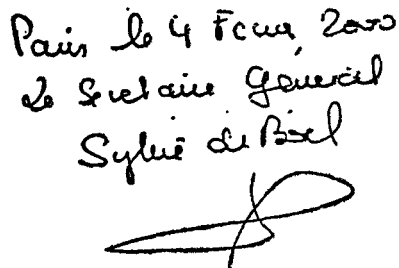 Paris le 4 Fevrier 2000
Le Secretaire Général
Sylvie de